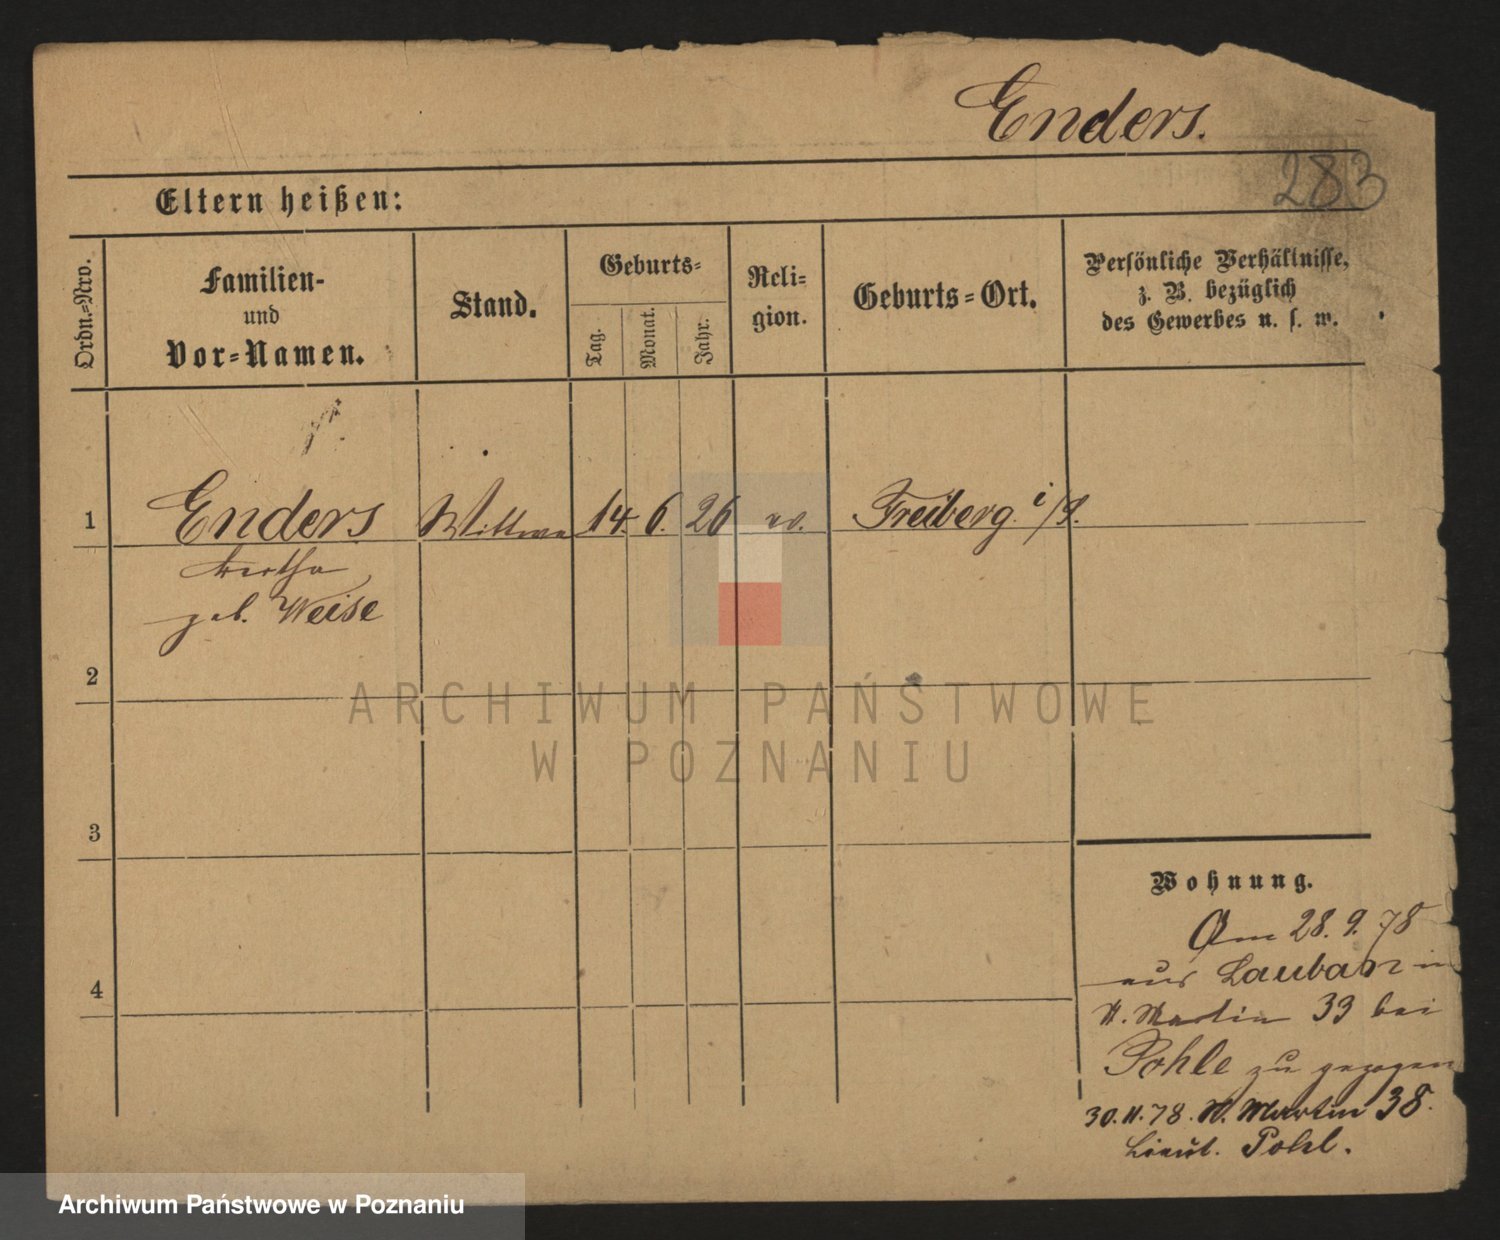 Enders.
283
Eltern heißen:
Ordn.-Nro.
Familien-
und
Vor-Namen.
Stand.
Geburts-
Tag.
Monat.
Jahr.
Reli-
gion.
Geburts-Ort.
Persönliche Verhältnisse,
z. B. bezüglich
des Gewerbes u. s. w.
1
Enders Wittwe 14. 6. 26 ev. Freiberg i/S.
Bertha
geb. Weise
2
3
4
Wohnung.
Am 28. 9. 78
aus Lauban in
St. Martin 33 bei
Pohle zu gezogen
30.11.78. St. Martin 38.
Lieut. Pohl.
ARCHIWUM PAŃSTWOWE
W POZNANIU
Archiwum Państwowe w Poznaniu